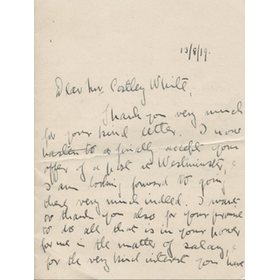 13/8/19.
Dear Mr. Costley White,
Thank you very much
for your kind letter. I now
hasten to finally accept your
offer of a post at Westminster,
I am looking forward to going
there very much indeed. I want
to thank you also for your promise
to do all that is in your power
for me in the matter of salary,
for the very kind interest you have